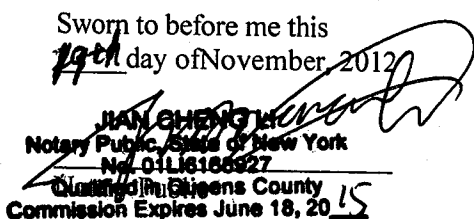 Sworn to before me this
19th day ofNovember, 2012
JIAN CHENG LI
Notary Public, State of New York
No. 01LI6166927
Notary Public
Qualified in Queens County
Commission Expires June 18, 2015